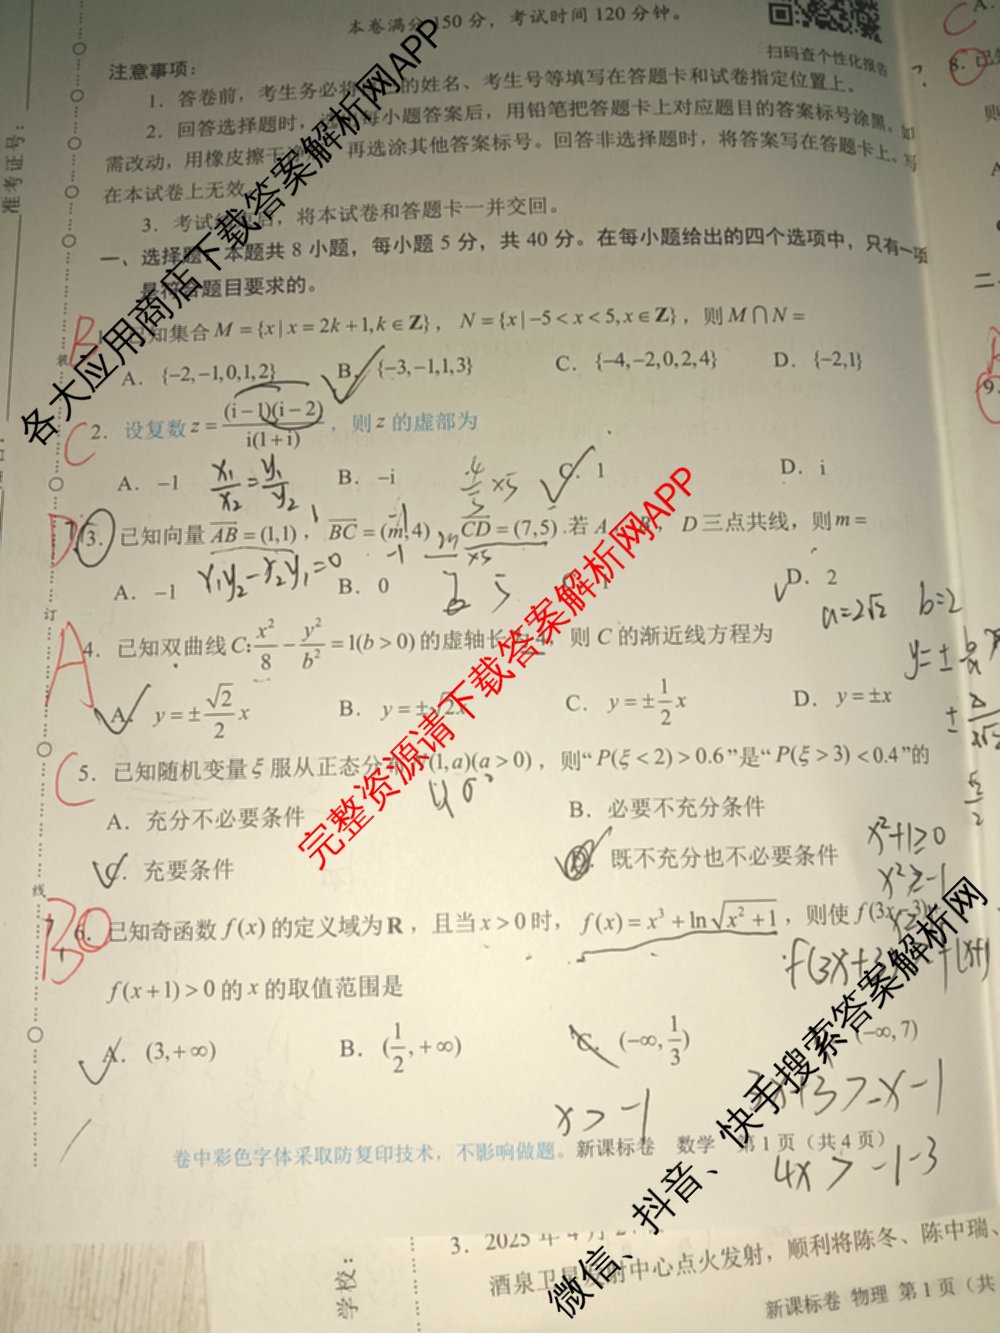 本卷满分150分，考试时间120分钟。
扫码查个性化报告
准考证号：
注意事项：
1．答卷前，考生务必将的姓名、考生号等填写在答题卡和试卷指定位置上。
2．回答选择题时，每小题答案后，用铅笔把答题卡上对应题目的答案标号涂黑。如
需改动，用橡皮擦干，再选涂其他答案标号。回答非选择题时，将答案写在答题卡上。写
在本试卷上无效。
3．考试结束后，将本试卷和答题卡一并交回。
一、选择题：本题共 8 小题，每小题 5 分，共 40 分。在每小题给出的四个选项中，只有一项
是符合题目要求的。
B
1．已知集合 M = {x | x = 2k + 1, k ∈ Z}，N = {x | −5 < x < 5, x ∈ Z}，则 M ∩ N =
A．{−2, −1, 0, 1, 2} B．{−3, −1, 1, 3} C．{−4, −2, 0, 2, 4} D．{−2, 1}
C
2．设复数 z = (i − 1)(i − 2) / i(1 + i)，则 z 的虚部为
A．−1 B．−i C．1 D．i
x₁/x₂ = y₁/y₂
4/5 ×5
D
3．已知向量 AB = (1, 1)，BC = (m, 4)，CD = (7, 5).若 A，B，D 三点共线，则 m =
x₁y₂ − x₂y₁ = 0
A．−1 B．0 C．1 D．2
a=2√2 b=2
A
4．已知双曲线 C: x²/8 − y²/b² = 1(b > 0) 的虚轴长为 4，则 C 的渐近线方程为
y=± b/a x
A．y = ± √2/2 x B．y = ± √2x C．y = ± 1/2 x D．y = ±x
√2/2
C
5．已知随机变量 ξ 服从正态分布 (1, a)(a > 0)，则“ P(ξ < 2) > 0.6 ”是“ P(ξ > 3) < 0.4 ”的
A．充分不必要条件 B．必要不充分条件
C．充要条件 D．既不充分也不必要条件
x²+1≥0
x²≥-1
B
6．已知奇函数 f(x) 的定义域为 R，且当 x > 0 时，f(x) = x³ + ln√(x² + 1)，则使 f(3x
f(x + 1) > 0 的 x 的取值范围是
A．(3, +∞) B．(1/2, +∞) C．(−∞, 1/3) (−∞, 7)
3x+3>-x-1
x>-1
4x>-1-3
卷中彩色字体采取防复印技术，不影响做题。 新课标卷 数学 第 1 页（共 4 页）
装
订
线
C
8．已知
则
二
9．
学校：
3．2025 年 4 月 2
酒泉卫星发射中心点火发射，顺利将陈冬、陈中瑞、
新课标卷 物理 第 1 页（共
各大应用商店下载答案解析网APP
完整资源请下载答案解析网APP
微信、抖音、快手搜索答案解析网